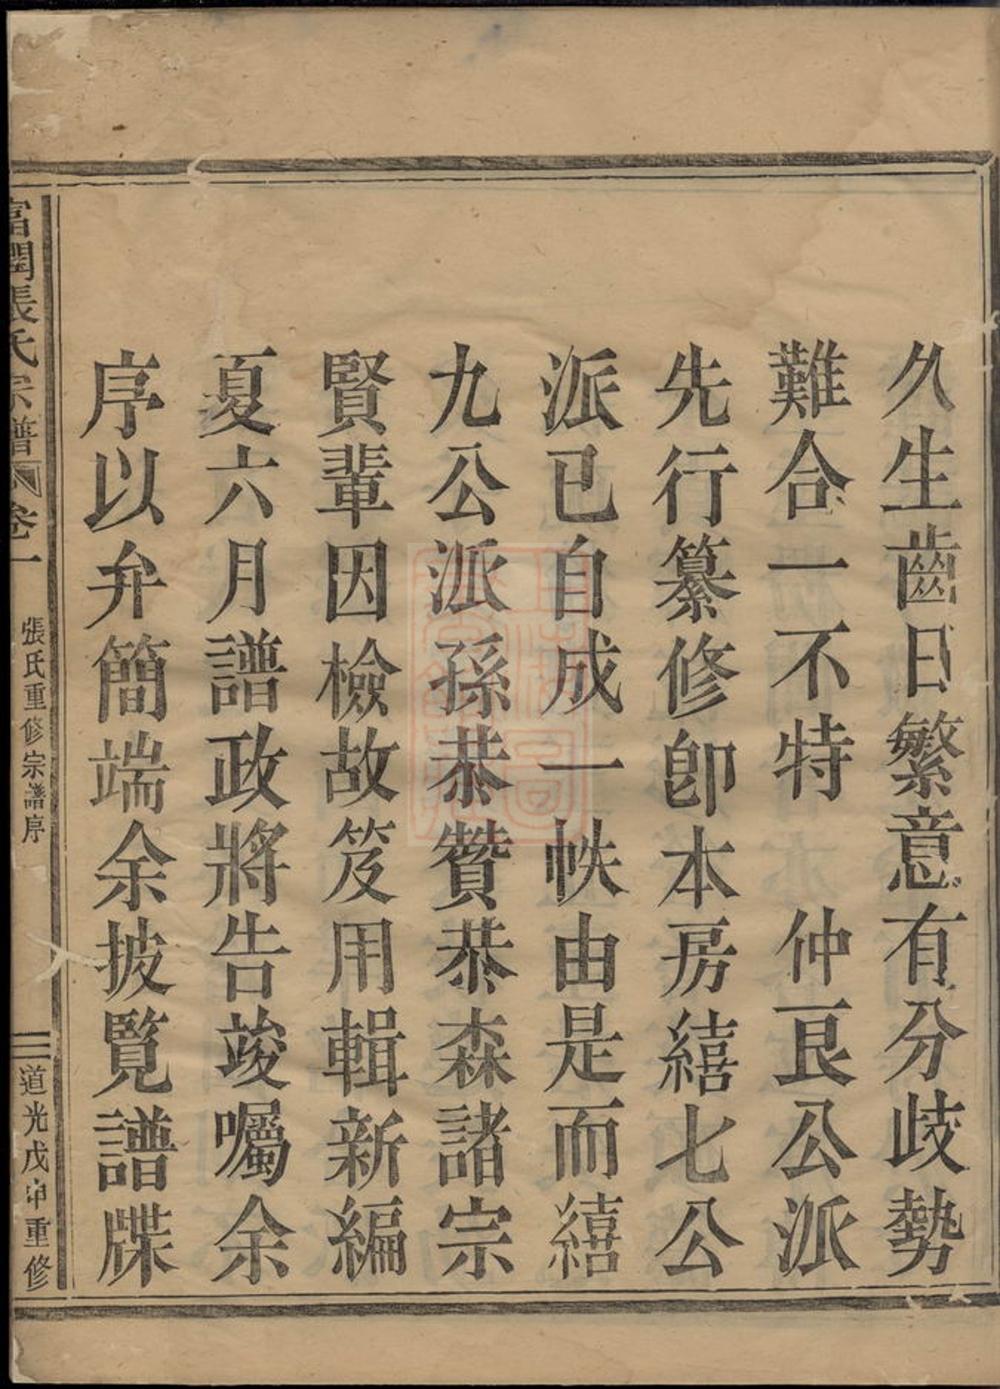 久生齒日繁意有分歧勢
難合一不特仲艮公派
先行纂修卽本房縉七公
派已自成一帙由是而縉
九公派孫恭贊恭森諸宗
賢輩因檢故笈用輯新編
夏六月譜政將告竣囑余
序以弁簡端余披覽譜牒
富閏張氏宗譜 卷一 張氏重修宗譜序 三 道光戊申重修